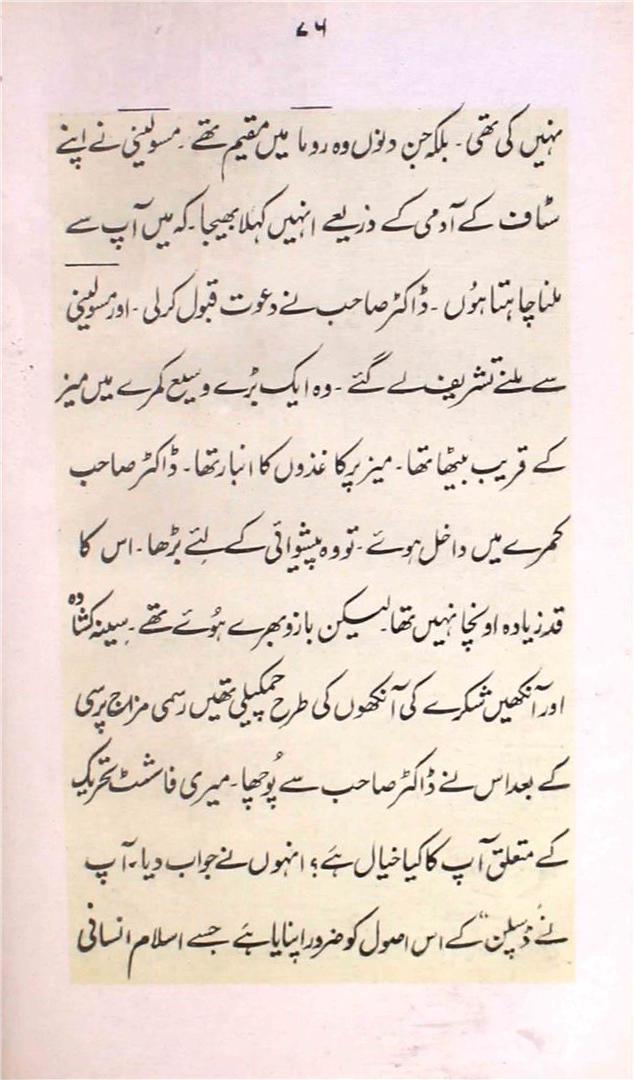 ۷۶
نہیں کی تھی۔ بلکہ جن دنوں وہ روما میں مقیم تھے۔ مسولینی نے اپنے
سٹاف کے آدمی کے ذریعے انہیں کہلا بھیجا۔ کہ میں آپ سے
ملنا چاہتا ہُوں۔ ڈاکٹر صاحب نے دعوت قبول کرلی۔ اور مسولینی
سے ملنے تشریف لے گئے۔ وہ ایک بڑے وسیع کمرے میں میز
کے قریب بیٹھا تھا۔ میز پر کاغذوں کا انبار تھا۔ ڈاکٹر صاحب
کمرے میں داخل ہوئے۔ تو وہ پیشوائی کے لئے بڑھا۔ اس کا
قد زیادہ اونچا نہیں تھا۔ لیکن بازو بھرے ہُوئے تھے۔ سینہ کشادہ
اور آنکھیں شکرے کی آنکھوں کی طرح چمکیلی تھیں رسمی مزاج پرسی
کے بعد اس نے ڈاکٹر صاحب سے پُوچھا۔ میری فاشسٹ تحریک
کے متعلق آپ کا کیا خیال ہے؟ انہوں نے جواب دیا۔ آپ
نے ”ڈسپلن“ کے اس اصول کو ضرور اپنایا ہے جسے اسلام انسانی